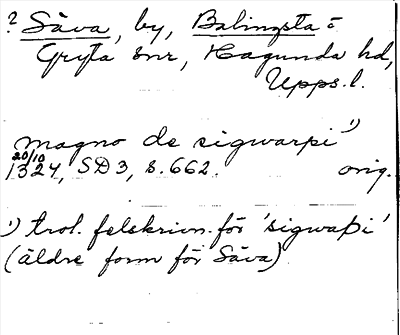 ? Såva, by, Balingsta o
Gryta snr, Hagunda hd,
Upps. l.
magno de sigwarpi 1)
20/10
1324, SD 3, s. 662. orig.
1) trol. felskrivn. för 'sigwaþi'
(äldre form för Såva)